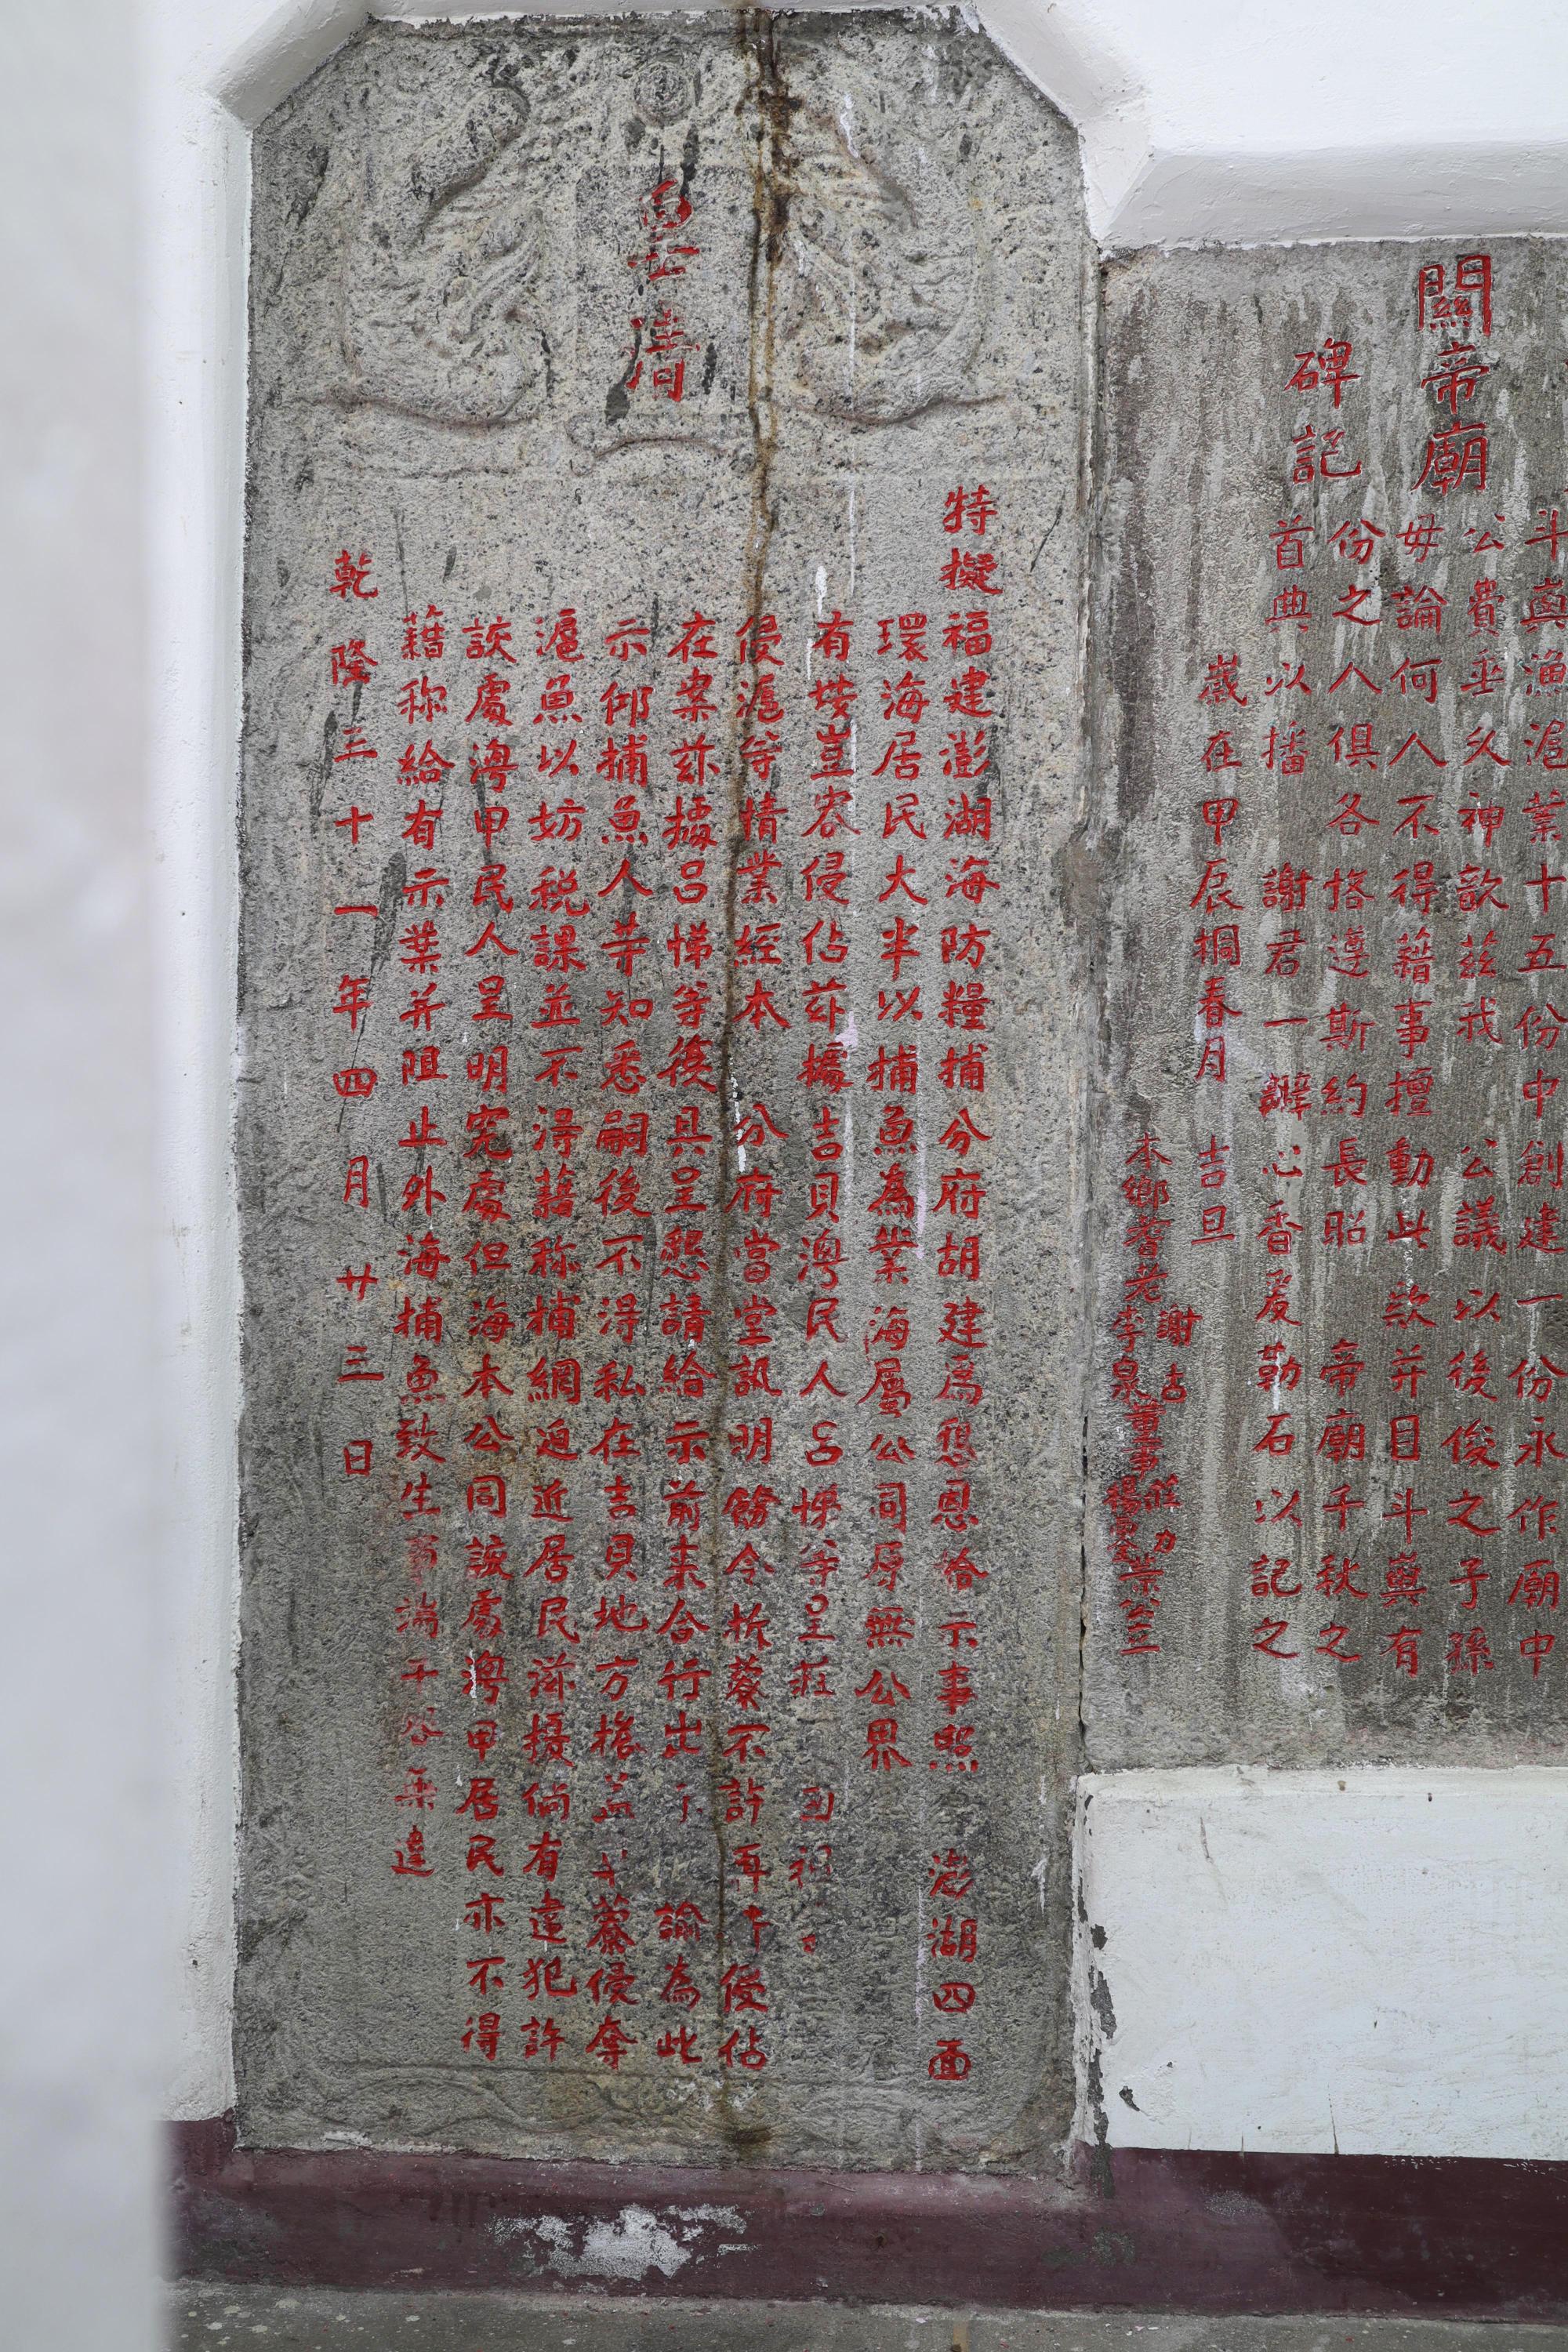 皇清
特擬福建澎湖海防糧捕分府胡建為懇恩給示事照 澎湖四面
環海居民大半以捕魚為業海屬公司厚無公界
有埃豈容侵佔茲據吉貝澳民人呂悌等呈莊
侵滬等情業經本 分府當堂訊明飭令拆藔不許再 侵佔
在案茲據呂悌等復具呈懇請給示前来合行出 諭為此
示仰捕魚人等知悉嗣後不淂私在吉貝地方搭盖 藔侵奪
滬魚以妨稅課並不淂藉称捕網迫近居民滋擾倘有違犯許
該處澳甲民人呈明究處但海本公同該處澳甲居民亦不得
藉称給有示葉并阻止外海捕魚致生 違
乾隆三十一年四月廿三日
關帝廟
碑記
斗與漁滬業十五份中創建一份永作廟中
公費垂久神歆茲找 公議以後後之子孫
毋論何人不得藉事擅動此欵并目斗與有
份之人俱各恪遵斯約長昭 帝廟千秋之
首典以播 謝君一瓣心香爰勒石以記之
歲在甲辰桐春月 吉旦
本鄉耆老 謝
李泉 董事